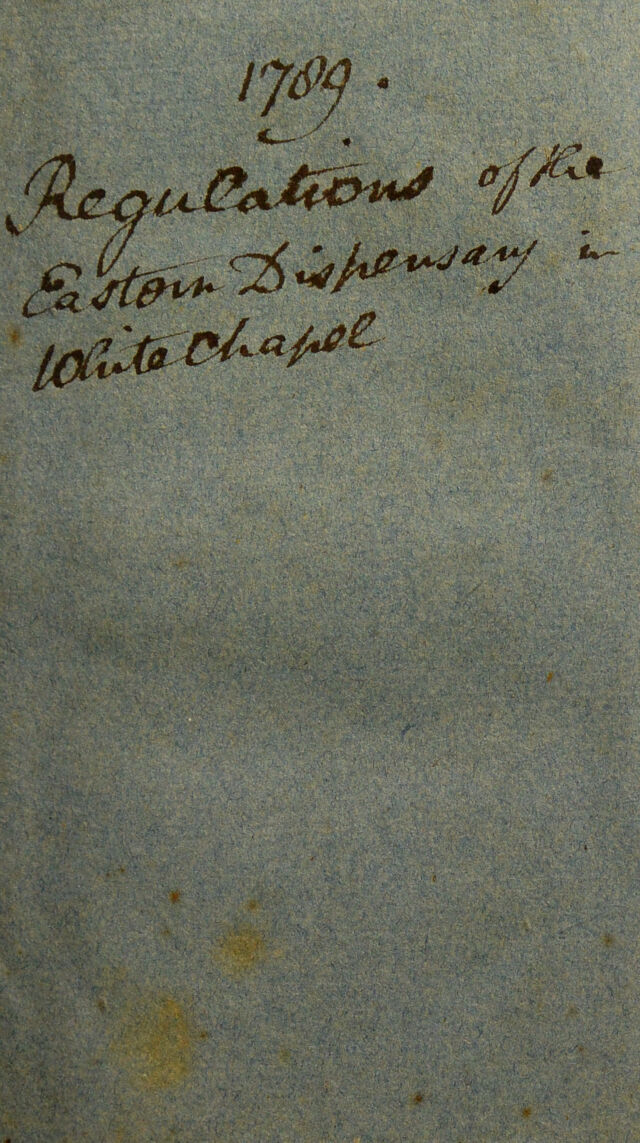 1789.
Regulations of the
Eastern Dispensary in
White Chapel